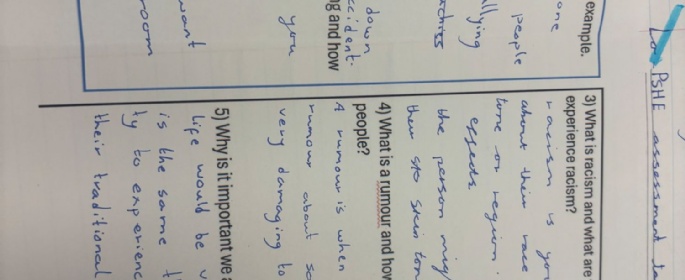 PSHE assessment
example.
one
people
allying
down
accident-
ng and how
you
want
room
3) What is racism and what are
experience racism?
racism is you
about their race
tone or region.
effects
the person mig
their sto skin ton
4) What is a rumour and how
people?
A rumour is when
rumour about so
very damaging to
5) Why is it important we
life would be v
is the same t
ty to experienc
their traditional